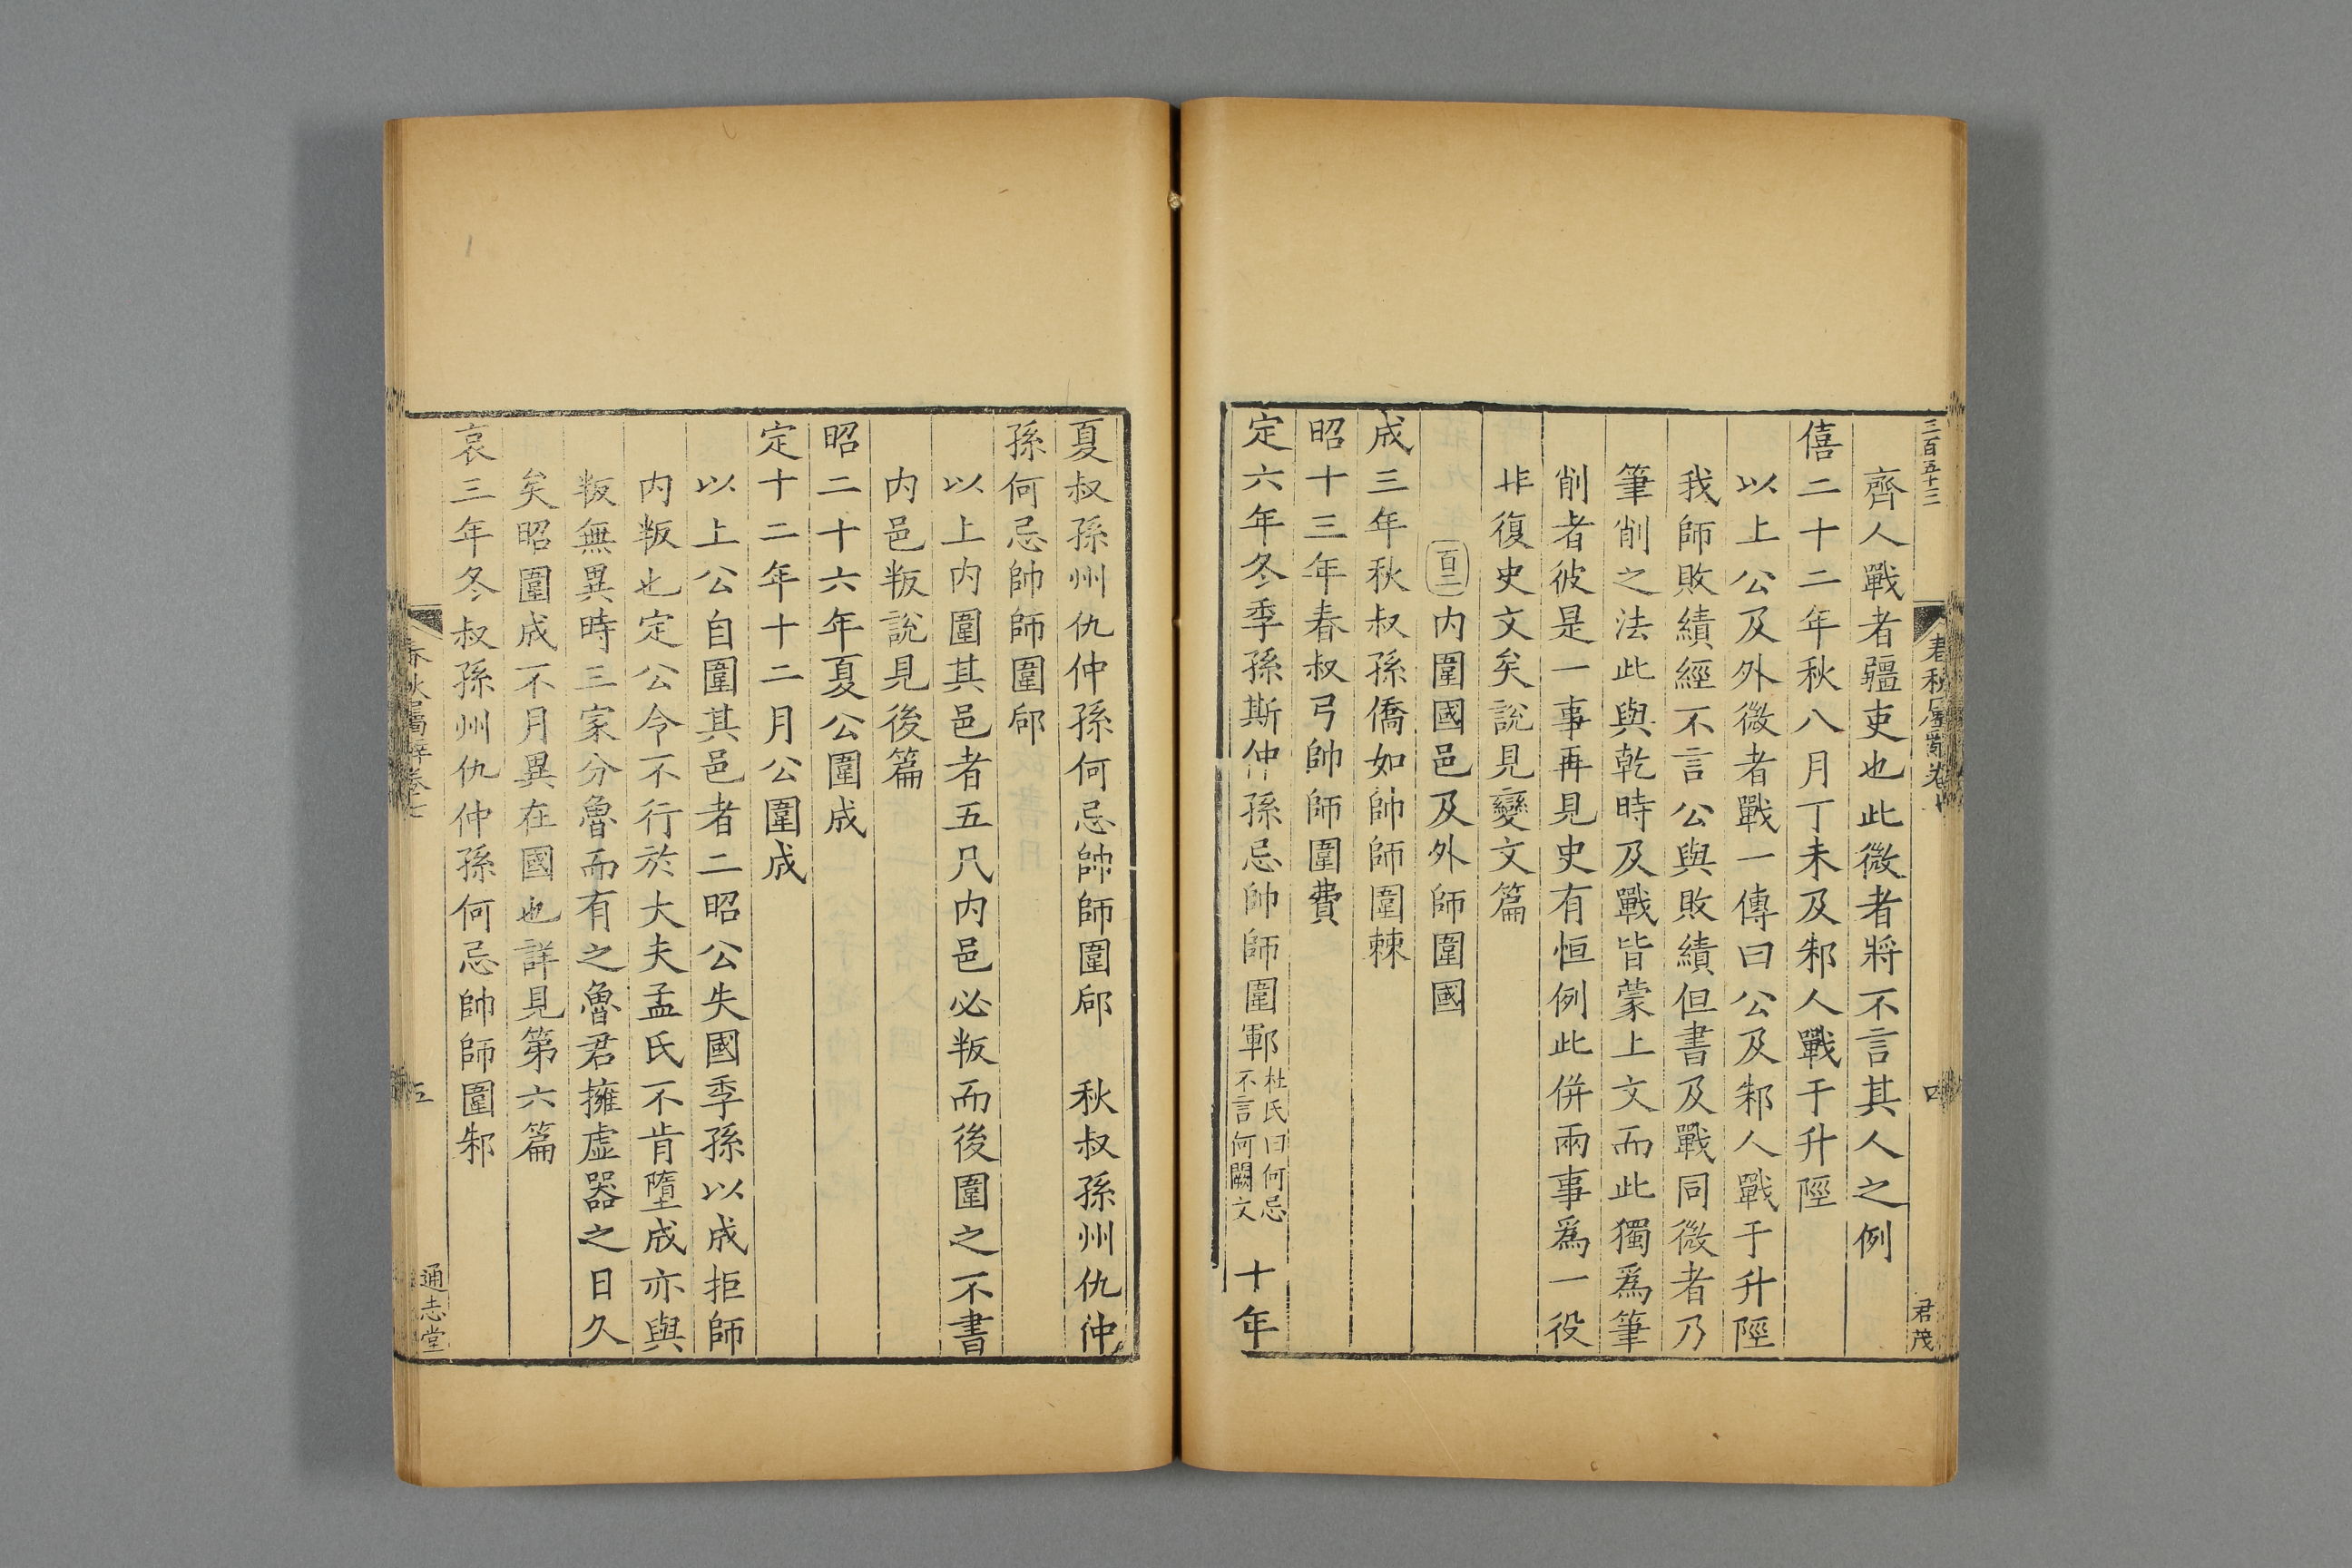 三百五十三
春秋屬辭卷
四
君茂
齊人戰者疆吏也此微者將不言其人之例
僖二十二年秋八月丁未及邾人戰于升陘
以上公及外微者戰一傳曰公及邾人戰于升陘
我師敗績經不言公與敗績但書及戰同微者乃
筆削之法此與乾時及戰皆蒙上文而此獨爲筆
削者彼是一事再見史有恒例此併兩事爲一役
非復史文矣說見變文篇
百二内圍國邑及外師圍國
成三年秋叔孫僑如帥師圍棘
昭十三年春叔弓帥師圍費
定六年冬季孫斯仲孫忌帥師圍鄆杜氏曰何忌不言何闕文 十年
夏叔孫州仇仲孫何忌帥師圍郈 秋叔孫州仇仲
孫何忌帥師圍郈
以上内圍其邑者五凡内邑必叛而後圍之不書
内邑叛說見後篇
昭二十六年夏公圍成
定十二年十二月公圍成
以上公自圍其邑者二昭公失國季孫以成拒師
内叛也定公令不行於大夫孟氏不肯墮成亦與
叛無異時三家分魯而有之魯君擁虛器之日久
矣昭圍成不月異在國也詳見第六篇
哀三年冬叔孫州仇仲孫何忌帥師圍邾
春秋屬辭卷七
五
通志堂